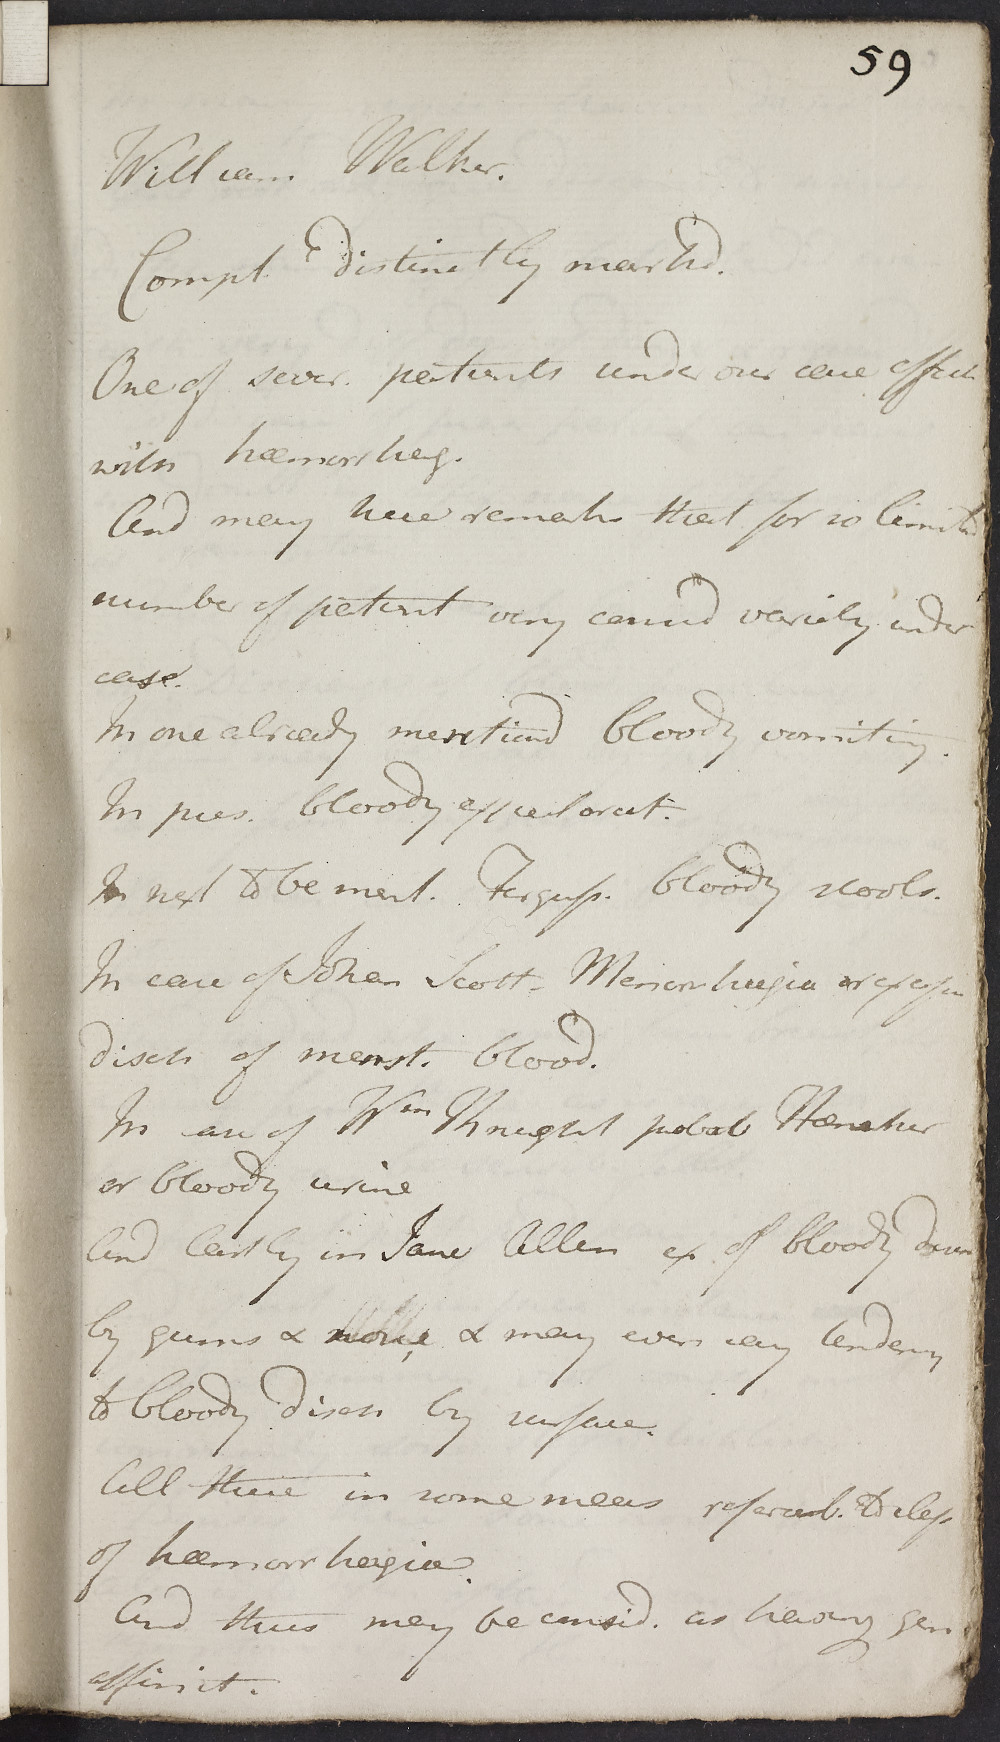 59
William Walker.
Compt. distinctly mark'd.
One of sever. patients under our care affect
with hæmorrhag.
And may here remark that for so limit'd
number of patient very consid variety under
case.
In one already mentiond bloody vomiting.
In pres. bloody expectorat.
In next to be ment. Ferguss. bloody stools.
In case of Johan Scott. Menorrhagia or excessiv
disch of menst. blood.
In case of Wm Knight probab Hæmatur
or bloody urine
And lastly in Jane Allen ex. of bloody
by gums & nose & may even say tendency
to bloody disch by surface.
All these in some meas referab. to class
of hæmorrhagiæ.
And thus may be consid. as having gen
affinit.